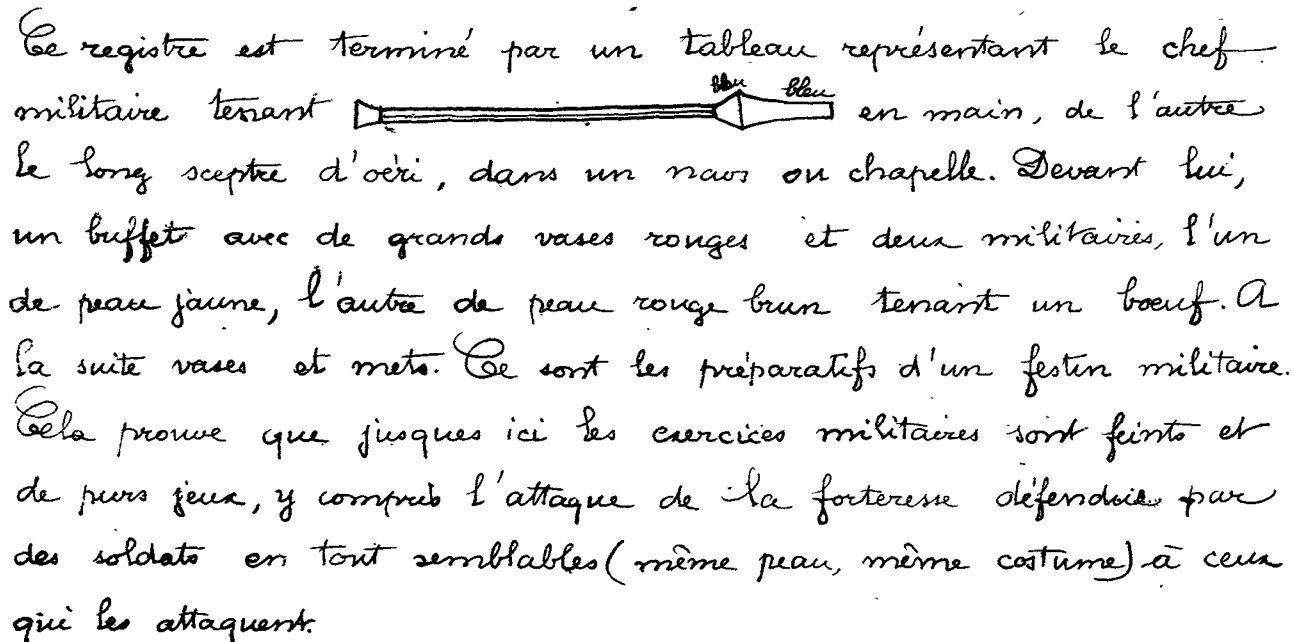 Ce registre est terminé par un tableau représentant le chef
militaire tenant bleu bleu en main, de l'autre
le long sceptre d'oëri, dans un naos ou chapelle. Devant lui,
un buffet avec de grands vases rouges et deux militaires, l'un
de peau jaune, l'autre de peau rouge brun tenant un bœuf. A
la suite vases et mets. Ce sont les préparatifs d'un festin militaire.
Cela prouve que jusques ici les exercices militaires sont feints et
de purs jeux, y compris l'attaque de la forteresse défendue par
des soldats en tout semblables (même peau, même costume) à ceux
qui les attaquent.